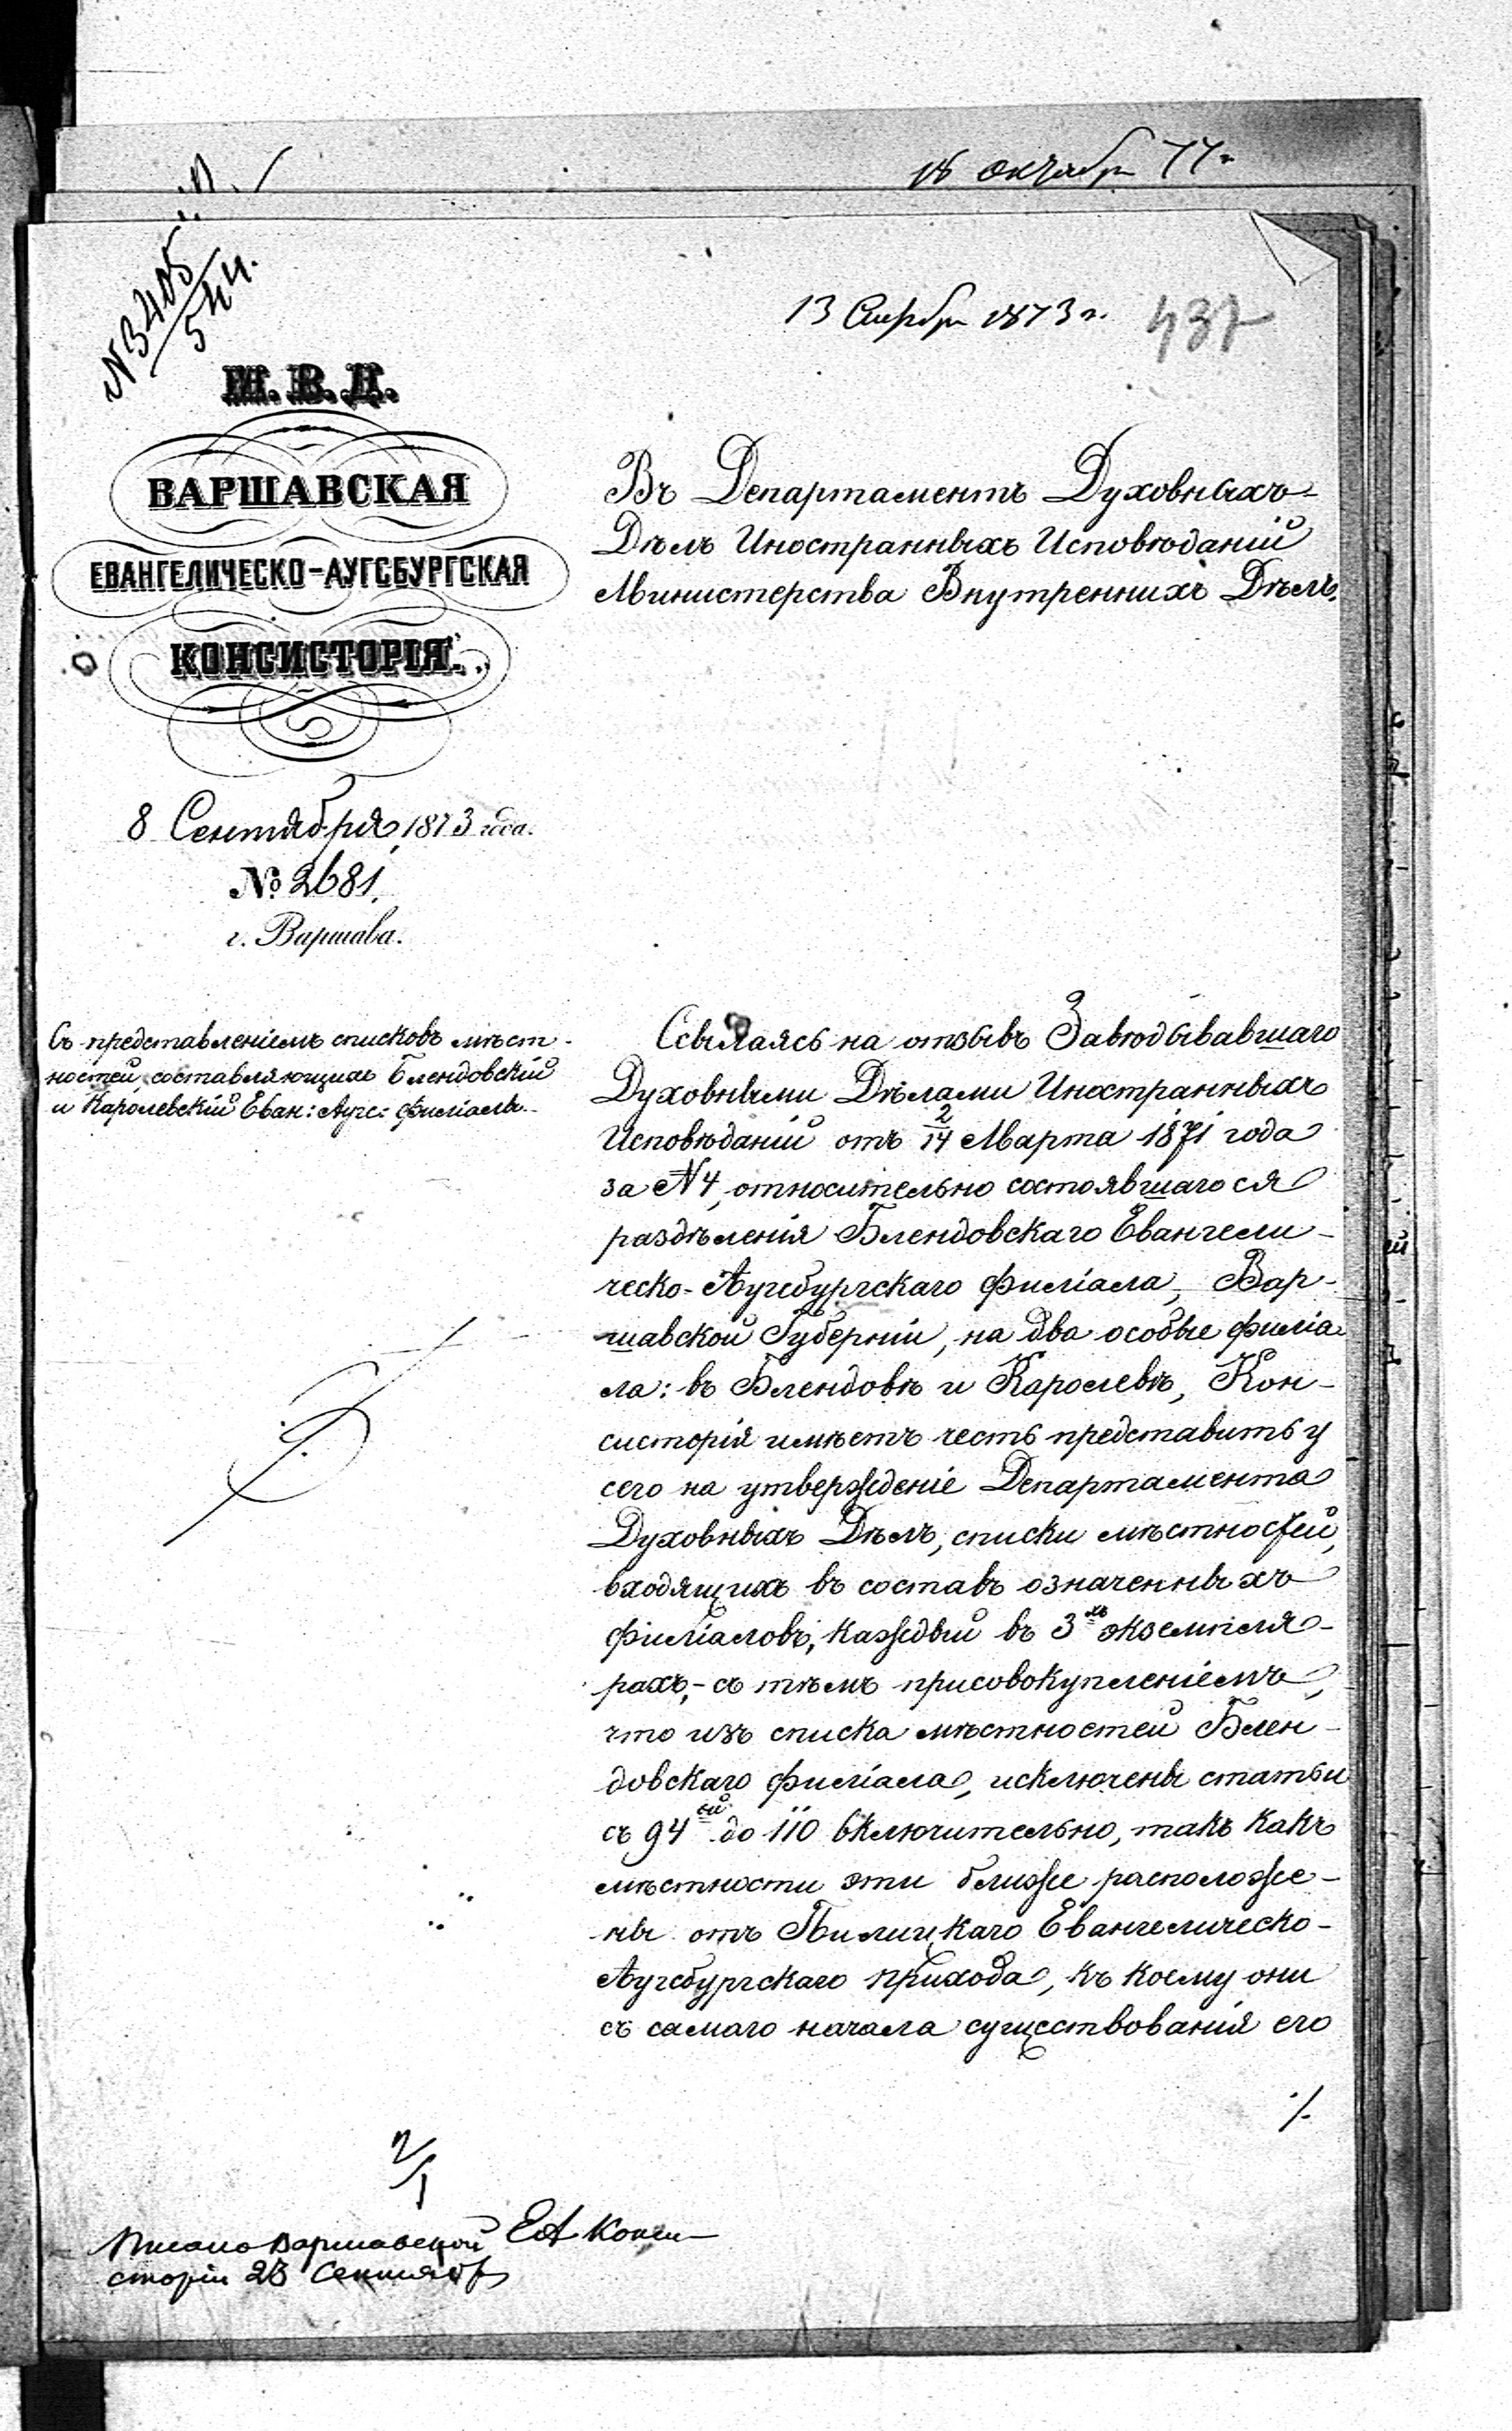 18 октябр 77 г
№ 3405/544.
13 Снтбр 1873 г.
437
М. В. Д.
ВАРШАВСКАЯ
ЕВАНГЕЛИЧЕСКО-АУГСБУРГСКАЯ
КОНСИСТОРІЯ.
8 Сентября 1873 года.
№ 2681.
г. Варшава.
Въ Департаментъ Духовныхъ
Дѣлъ Иностранныхъ Исповѣданій
Министерства Внутреннихъ Дѣлъ.
Съ представленіемъ списковъ мѣст-
ностей, составляющихъ Блендовскій
и Каролевскій Еван: Аугс: филіалы.
Ссылаясь на отзывъ Завѣдывавшаго
Духовными Дѣлами Иностранныхъ
Исповѣданій отъ 2/14 Марта 1871 года
за N 4, относительно состоявшагося
раздѣленія Блендовскаго Евангели-
ческо-Аугсбургскаго филіала, Вар-
шавской Губерніи, на два особые филіа-
ла: въ Блендовѣ и Каролевѣ, Кон-
систорія имѣетъ честь представить у
сего на утвержденіе Департамента
Духовныхъ Дѣлъ, списки мѣстностей,
входящихъ въ составъ означенныхъ
филіаловъ, каждый въ 3хъ экземпля-
рахъ, - съ тѣмъ присовокупленіемъ,
что изъ списка мѣстностей Блен-
довскаго филіала, исключены статьи
съ 94ой до 110 включительно, такъ какъ
мѣстности эти ближе расположе-
ны отъ Пилицкаго Евангелическо-
Аугсбургскаго прихода, къ коему они
съ самаго начала существованія его
./.
2/1
Писано Варшавской ЕА Конси-
сторіи 23 Сентября